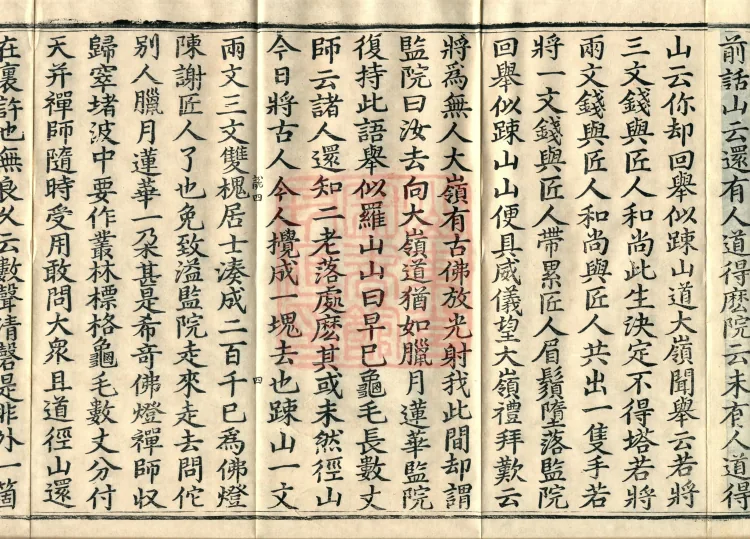 前話山云還有人道得麽院云未有人道得
山云你却回舉似踈山道大嶺聞舉云若將
三文錢與匠人和尚此生決定不得塔若將
兩文錢與匠人和尚與匠人共出一隻手若
將一文錢與匠人帶累匠人眉鬚墮落監院
回舉似踈山山便具威儀望大嶺禮拜歎云
將爲無人大嶺有古佛放光射我此間却謂
監院曰汝去向大嶺道猶如臘月蓮華監院
復持此語舉似羅山山曰早已龜毛長數丈
師云諸人還知二老落處麽其或未然徑山
今日將古人今人攪成一塊去也踈山一文
四
兩文三文雙槐居士湊成二百千已爲佛燈
陳謝匠人了也免致溢監院走來走去問佗
別人臘月蓮華一朵甚是希奇佛燈禪師収
歸窣堵波中要作叢林標格龜毛數丈分付
天并禪師隨時受用敢問大衆且道徑山還
在裏許也無良久云數聲清磬是非外一箇